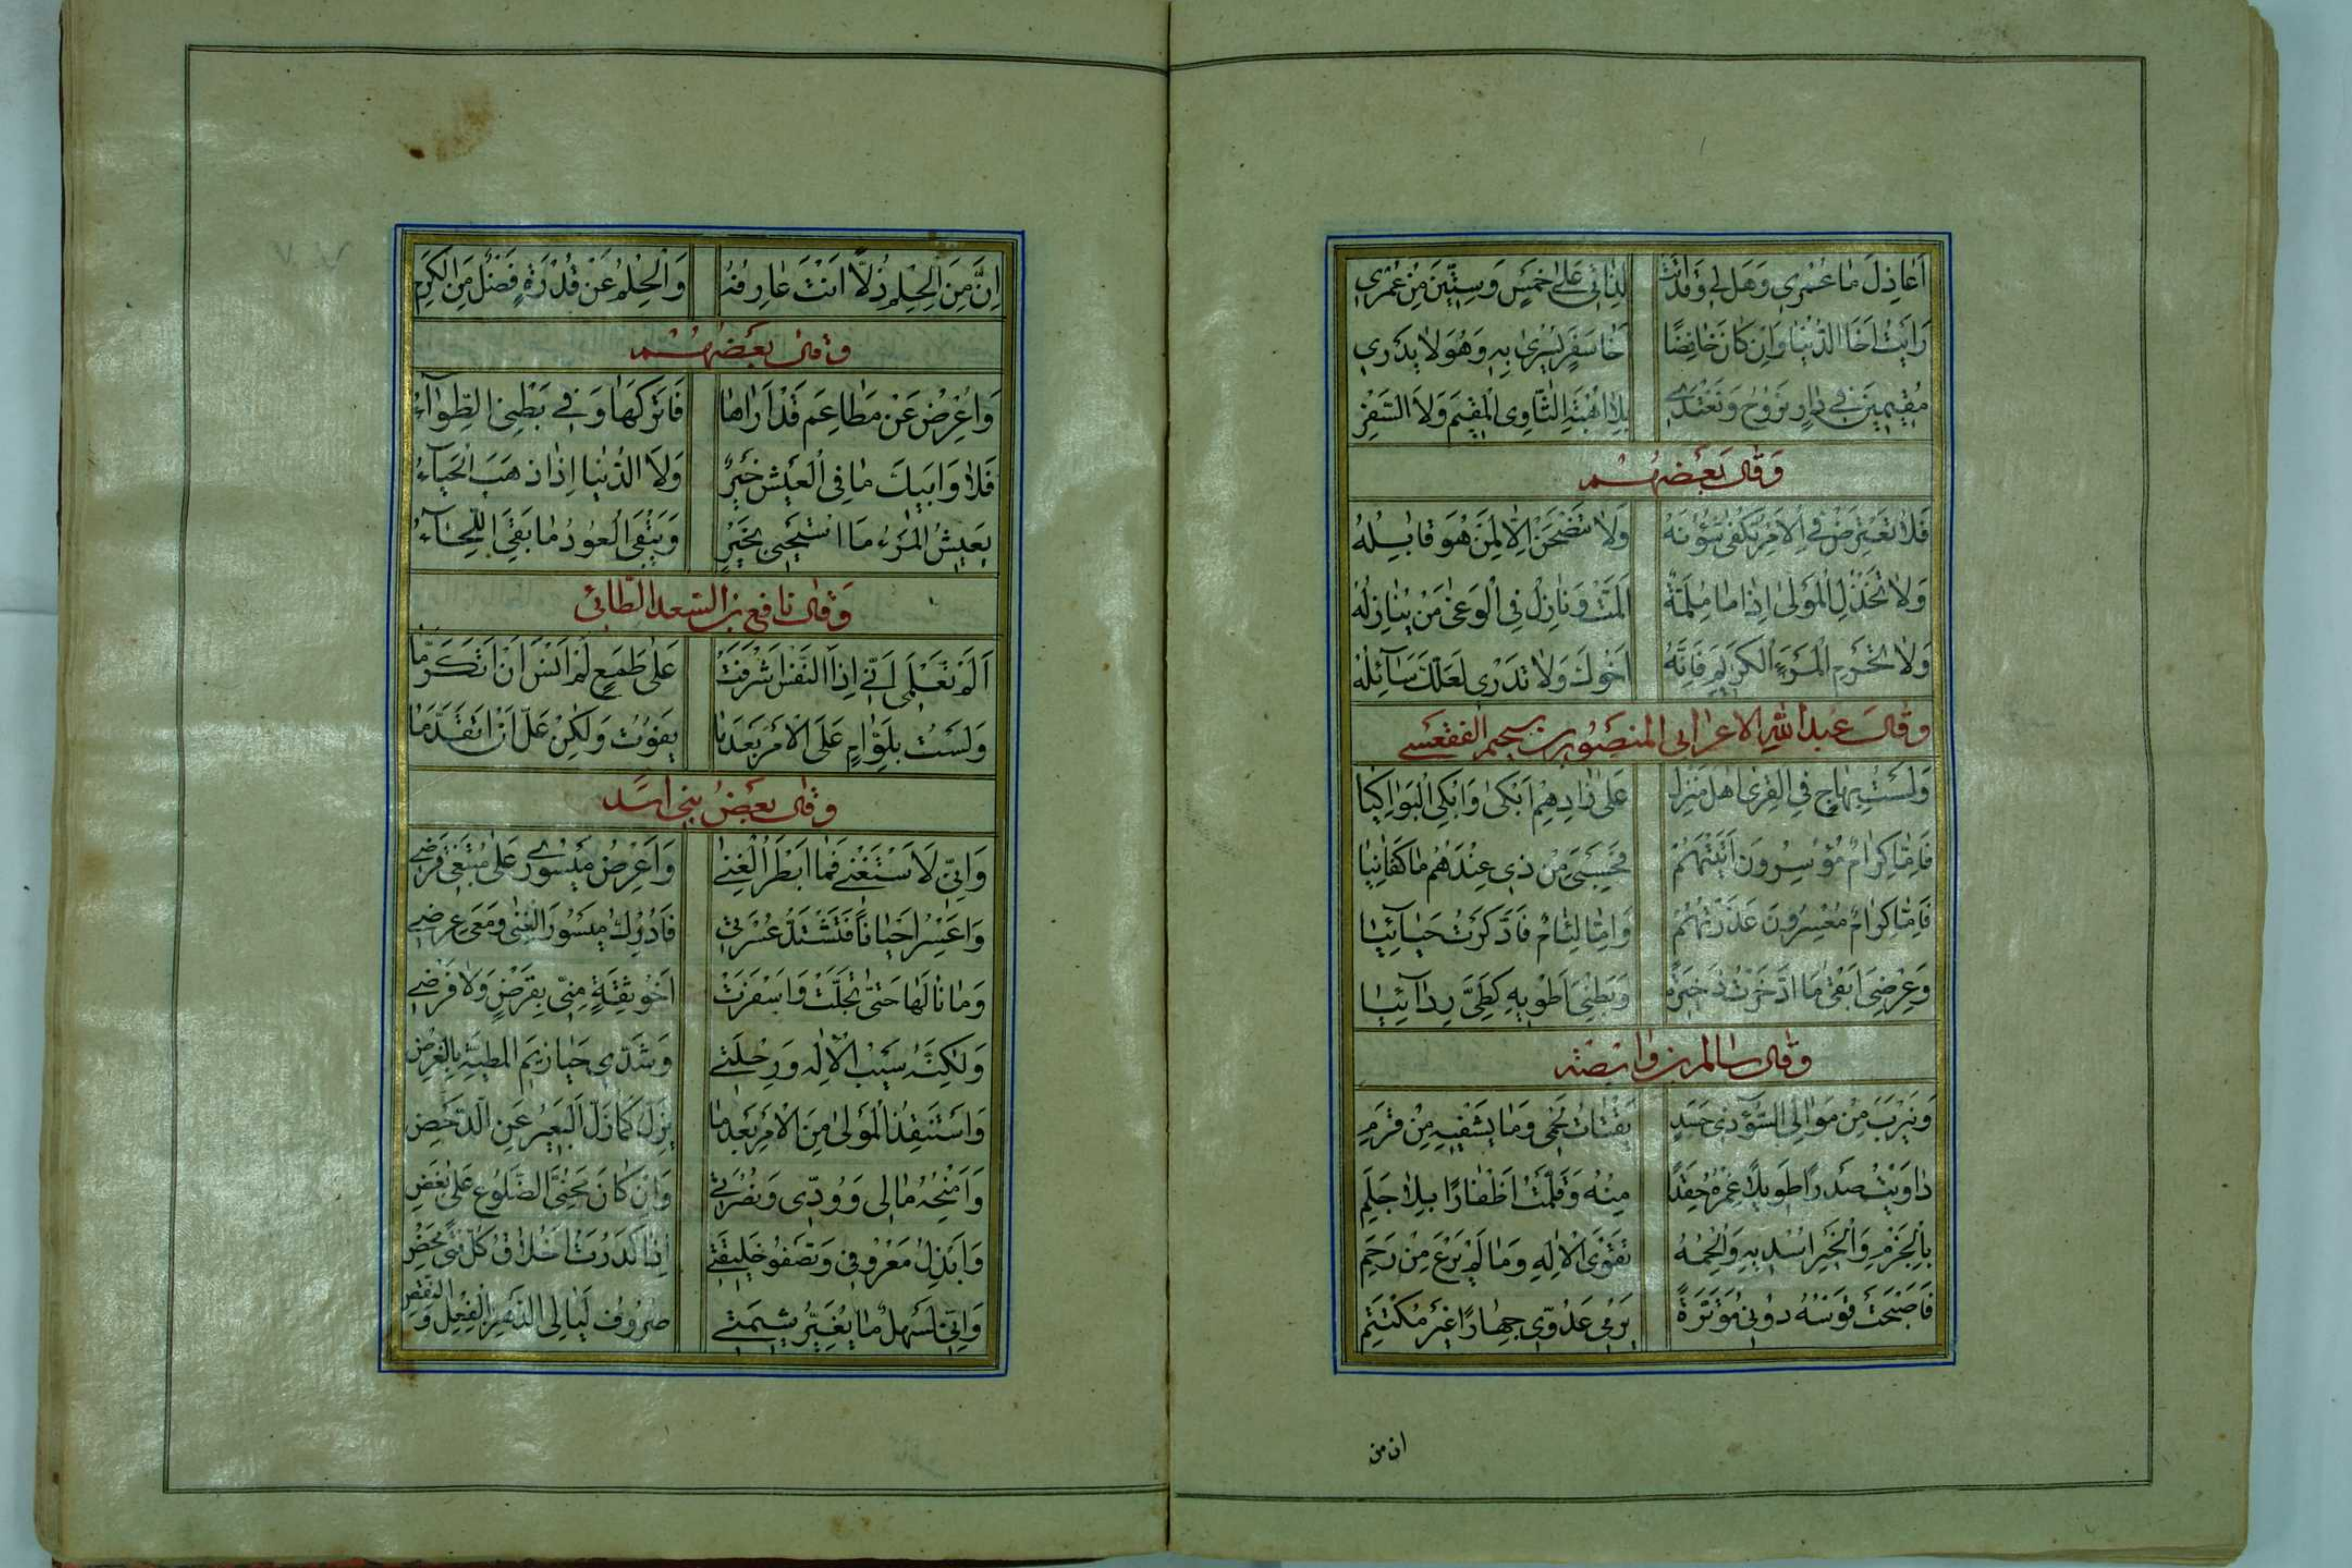 اَعَاذِلَ مَا عُمْرِي وَهَل لِي وَقَدْ اَتَتْ لِدَاتِي عَلٰى خَمْسٍ وَسِتِّينَ مِنْ عُمْرِي
رَاَيْتُ اَخَا الدُّنْيَا وَاِنْ كَانَ خَافِضًا اَخَا سَفَرٍ يُسْرٰى بِهِ وَهُوَ لَا يَدْرِي
مُقِيمِينَ فِي دَارٍ نَرُوحُ وَنَغْتَدِي بِلَا اُهْبَةِ الثَّاوِي الْمُقِيمِ وَلَا السَّفْرِ
وَقَالَ بَعْضُهُمْ
فَلَا تَعْتَرِضْ فِي الْاَمْرِ تُكْفٰى شُؤُنَهُ وَلَا تَنْصَحَنْ اِلَّا لِمَنْ هُوَ قَابِلُهُ
وَلَا تَخْذُلِ الْمَوْلٰى اِذَا مَا مُلِمَّةٌ اَلَمَّتْ وَنَازِلْ فِي الْوَغٰى مَنْ يُنَازِلُهُ
وَلَا تَحْرِمِ الْمَرْءَ الْكَرِيمَ فَاِنَّهُ اَخُوكَ وَلَا تَدْرِي لَعَلَّكَ سَآئِلُهُ
وَقَالَ عَبْدُ اللّٰهِ الاعرابى المنصور بن سحيم الفقعسى
وَلَسْتُ بِهَاجٍ فِي الْقِرٰى اَهْلَ مَنْزِلٍ عَلٰى زَادِهِمْ اَبْكِي وَاُبْكِي الْبَوَاكِيَا
فَاِمَّا كِرَامٌ مُوسِرُونَ اَتَيْتُهُمْ فَحَسْبِيَ مِنْ ذِي عِنْدَهُمْ مَا كَفَانِيَا
فَاِمَّا كِرَامٌ مُعْسِرُونَ عَذَرْتُهُمْ وَاِمَّا لِئَامٌ فَادَّكَرْتُ حَيَآئِيَا
وَعِرْضِي اَبْقٰى مَا ادَّخَرْتُ ذَخِيرَةً وَبَطْنِي اَطْوِيهِ كَطَيِّ رِدَآئِيَا
وَقَالَ سالم بن وابصة
وَنَيْرَبٍ مِنْ مَوَالِي السُّوٓءِ ذِي حَسَدٍ يَقْتَاتُ لَحْمِي وَمَا يَشْفِيهِ مِنْ قَرَمِ
دَاوَيْتُ صَدْرًا طَوِيلًا غِمْرُهُ حَقِدًا مِنْهُ وَقَلَّمْتُ اَظْفَارًا بِلَا جَلَمِ
بِالْحَزْمِ وَالْخَيْرِ اُسْدِيهِ وَاُلْحِمُهُ تَقْوَى الْاِلٰهِ وَمَا لَمْ يَرْعَ مِنْ رَحِمِ
فَاَصْبَحَتْ قَوْسُهُ دُونِي مُوَتَّرَةً يَرْمِي عَدُوِّي جِهَارًا غَيْرَ مُكْتَتِمِ
ان من
اِنَّ مِنَ الْحِلْمِ ذُلًّا اَنْتَ عَارِفُهُ وَالْحِلْمُ عَنْ قُدْرَةٍ فَضْلٌ مِنَ الْكَرَمِ
وَقَالَ بَعْضُهُمْ
وَاُعْرِضُ عَنْ مَطَاعِمَ قَدْ اَرَاهَا فَاَتْرُكُهَا وَفِي بَطْنِي الطِّوَآءُ
فَلَا وَاَبِيكَ مَا فِي الْعَيْشِ خَيْرٌ وَلَا الدُّنْيَا اِذَا ذَهَبَ الْحَيَآءُ
يَعِيشُ الْمَرْءُ مَا اسْتَحْيٰى بِخَيْرٍ وَيَبْقَى الْعُودُ مَا بَقِيَ اللِّحَآءُ
وَقَالَ نَافِع بن السعد الطَّائِي
اَلَمْ تَعْلَمِي اَنِّي اِذَا النَّفْسُ اَشْرَفَتْ عَلٰى طَمَعٍ لَمْ اَنْسَ اَنْ اَتَكَرَّمَا
وَلَسْتُ بِلَوَّامٍ عَلَى الْاَمْرِ بَعْدَمَا يَفُوتُ وَلٰكِنْ عَلَّ اَنْ اَتَقَدَّمَا
وَقَالَ بَعْضُ بَنِي اَسَد
وَاِنِّي لَاَسْتَغْنِي فَمَا اَبْطَرُ الْغِنٰى وَاَعْرِضُ مَيْسُورِي عَلٰى مُبْتَغِي قَرْضِي
وَاُعْسِرُ اَحْيَانًا فَتَشْتَدُّ عُسْرَتِي فَاُدْرِكُ مَيْسُورَ الْغِنٰى وَمَعِي عِرْضِي
وَمَا نَالَهَا حَتّٰى تَجَلَّتْ وَاَسْفَرَتْ اَخُو ثِقَةٍ مِنِّي بِقَرْضٍ وَلَا فَرْضِ
وَلٰكِنَّهُ سَيْبُ الْاِلٰهِ وَرِحْلَتِي وَشَدِّي حَيَازِيمَ الْمَطِيَّةِ بِالْغَرْضِ
وَاَسْتَنْقِذُ الْمَوْلٰى مِنَ الْاَمْرِ بَعْدَمَا يَزِلُّ كَمَا زَلَّ الْبَعِيرُ عَنِ الدَّحْضِ
وَاَمْنَحُهُ مَالِي وَوُدِّي وَنُصْرَتِي وَاِنْ كَانَ مَحْنِيَّ الضُّلُوعِ عَلٰى بُغْضِ
وَاَبْذُلُ مَعْرُوفِي وَتَصْفُو خَلِيقَتِي اِذَا كَدِرَتْ اَخْلَاقُ كُلِّ فَتًى مَحْضِ
وَاِنِّي لَسَهْلٌ مَا يُغَيِّرُ شِيمَتِي صُرُوفُ لَيَالِي الدَّهْرِ بِالْفِعْلِ وَالنَّقْضِ